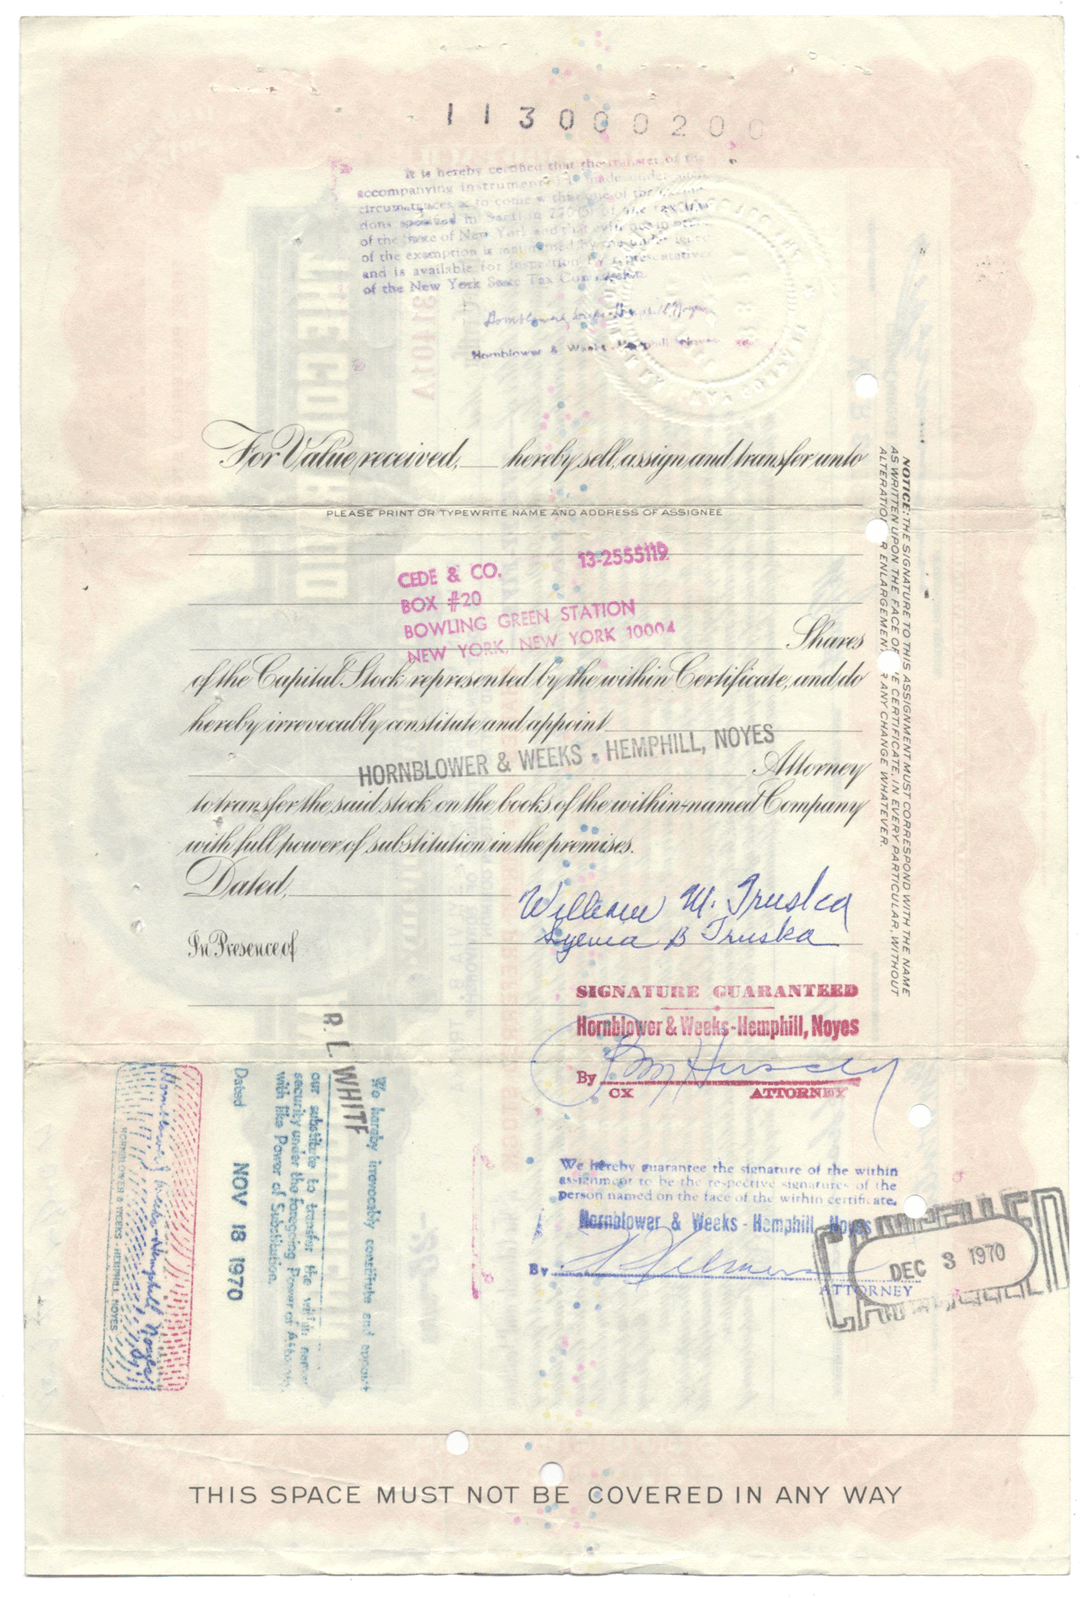 113000200
It is hereby certified that the transfer of the
accompanying instrument is made under
circumstances as to come within one of the exemp-
tions specified in Section 270 (5) of the tax law
of the State of New York and that evidence
of the exemption is maintained by the undersigned
and is available for inspection by representatives
of the New York State Tax Commission.
Hornblower & Weeks-Hemphill Noyes
Hornblower & Weeks-Hemphill Noyes
For Value received, hereby sell, assign and transfer unto
PLEASE PRINT OR TYPEWRITE NAME AND ADDRESS OF ASSIGNEE
CEDE & CO. 13-2555119
BOX #20
BOWLING GREEN STATION
NEW YORK, NEW YORK 10004
Shares
of the Capital Stock represented by the within Certificate, and do
hereby irrevocably constitute and appoint
HORNBLOWER & WEEKS - HEMPHILL, NOYES
Attorney
to transfer the said stock on the books of the within-named Company
with full power of substitution in the premises.
Dated,
William M. Truska
B Truska
In Presence of
SIGNATURE GUARANTEED
Hornblower & Weeks-Hemphill, Noyes
By
CX ATTORNEY
We hereby guarantee the signature of the within
assignment to be the respective signatures of the
person named on the face of the within certificate.
Hornblower & Weeks-Hemphill, Noyes
By
ATTORNEY
CANCELLED
DEC 3 1970
CANCELLED
NOTICE: THE SIGNATURE TO THIS ASSIGNMENT MUST CORRESPOND WITH THE NAME
AS WRITTEN UPON THE FACE OF THE CERTIFICATE, IN EVERY PARTICULAR, WITHOUT
ALTERATION OR ENLARGEMENT OR ANY CHANGE WHATEVER.
We hereby irrevocably constitute and appoint
R. L. WHITE
our substitute to transfer the within named
security under the foregoing Power of Attorney
with like Power of Substitution.
Dated NOV 18 1970
Hornblower & Weeks-Hemphill Noyes
HORNBLOWER & WEEKS - HEMPHILL NOYES
THIS SPACE MUST NOT BE COVERED IN ANY WAY